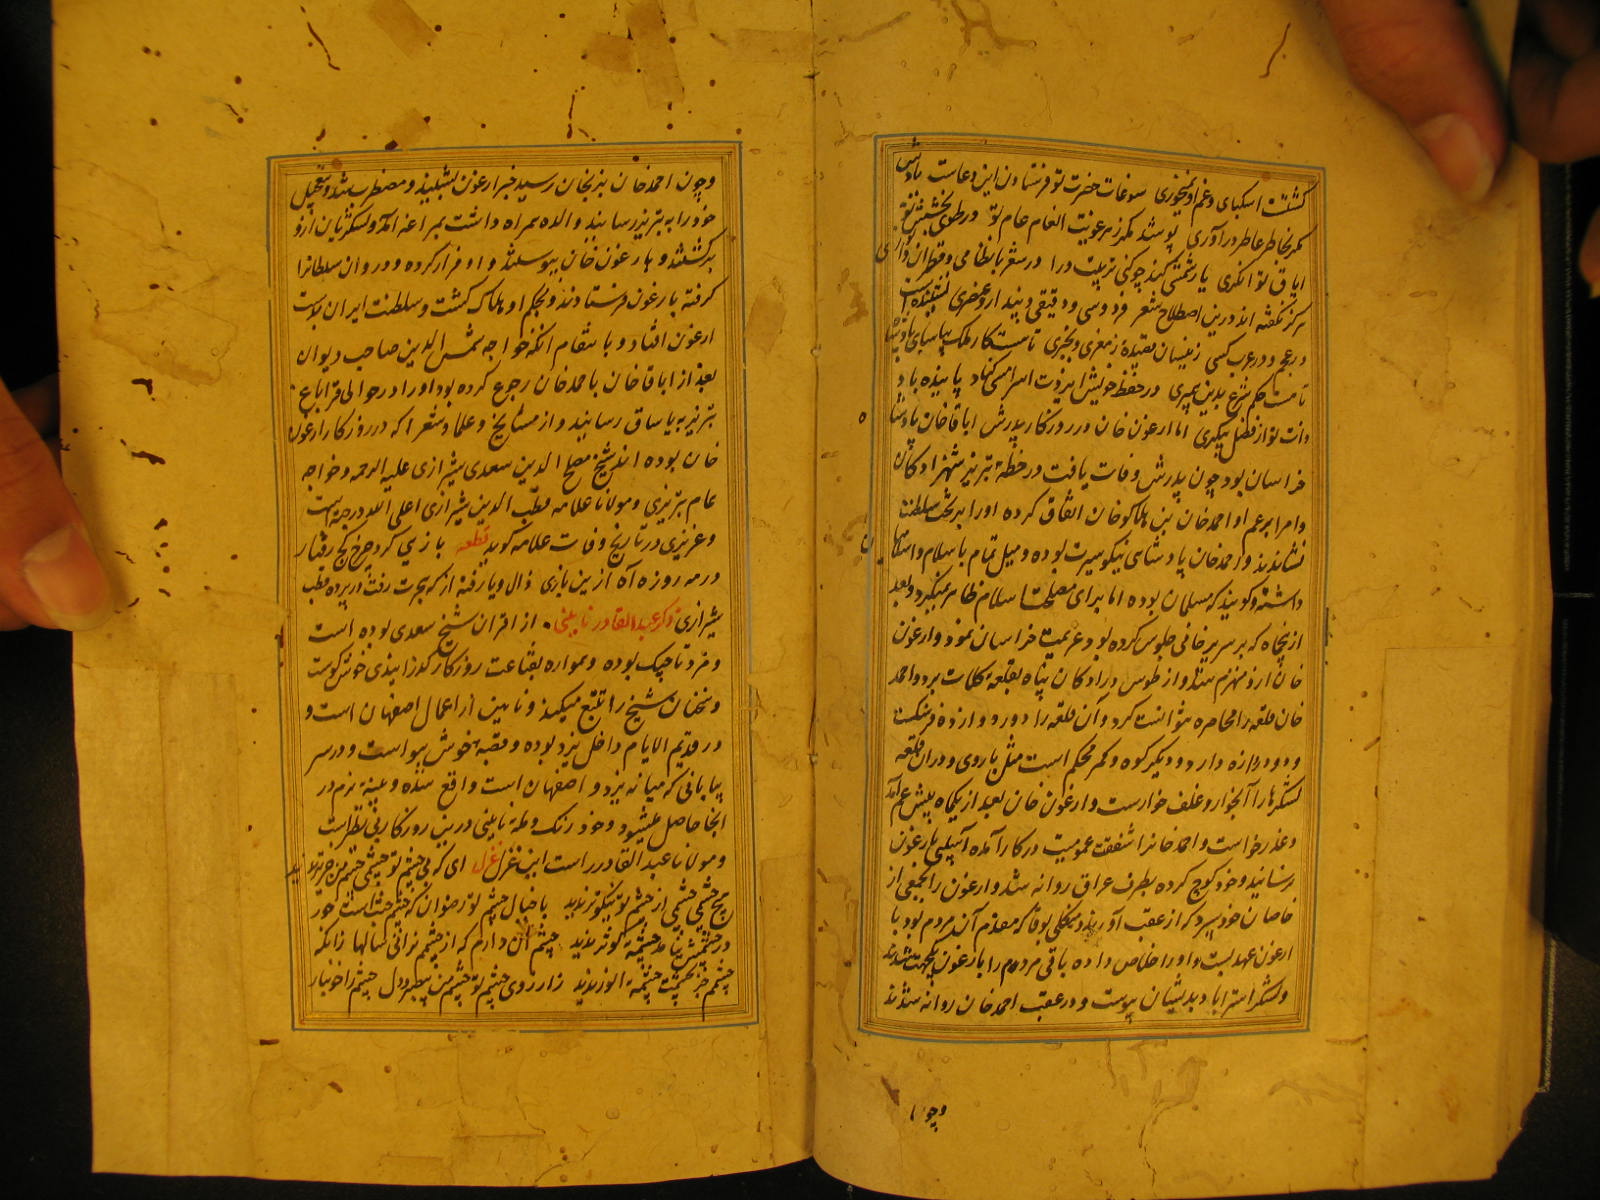 کشت اسکبای و غم او نمیخوری سوغات حضرت تو فرستادن این دعاست بادشهی
کر بخاطر عاطر درآوری پوسند مکرز مرعونیت انعام عام تو در طوی بخشش
ایاق توانکری یارشمتی کند چوکنی تربیت درا در سفر با نظامی و قطران
هرکز نکفته اند درین اصطلاح شعر فردوسی و دقیقی و پندار و عنصری
در عجم و در عرب کسی زینسان قصیدهٔ ز معزی و بحتری تا هست کار ملک بیاسای پادشاه
تا هست حکم شرع بدین پیمبری در حفظ خویش ایزدت پاینده باد
ذات تو از فضل اما ارغون خان در روزکار پدرش اباقا خان پادشاه
خراسان بود چون پدرش وفات یافت در خطهٔ تبریز شهزادکان
و امرا بر عم او احمد خان بن هلاکو خان اتفاق کرده او را بر تخت سلطنت
نشاندند و احمد خان پادشاهی نیکو سیرت بوده و میل تمام باسلام و اسلامیها
داشته و کویند که مسلمان بوده اما برای مصلحت اسلام ظاهر نمیکرد و بعد
از پنجاه که بر سریر خانی جلوس کرده بود عزیمت خراسان نمود و ارغون
خان ازو منهزم شد و از طوس و رادکان پناه بقلعهٔ کلات برد و احمد
خان قلعه را محاصره نتوانست کرد و آن قلعه را دور دوازده فرسنکست
و دو دروازه دارد و دیکر کوه و کمر محکم است مثل باروی و در آن قلعه
لشکرها را آبخوار و علف خوارست و ارغون خان بعد از یکماه پیش عم آمد
و عذر خواست و احمد خانرا شفقت عمومیت در کار آمده آسیبی بارغون
نرسانید و خود کوچ کرده بطرف عراق روانه شد و ارغون را بجمعی از
خاصان خود سپرد که از عقب آورند بوقا که مقدم آن مردم بود با
ارغون عهد بست و او را خلاص داده باقی مردم را با ارغون یکجهت شدند
و لشکر استراباد بدیشان پیوست و در عقب احمد خان روانه شدند
و چون
و چون احمد خان بزنجان رسید خبر ارغون بشنید و مضطرب شد و بتعجیل
خود را به تبریز رسانید و والده همراه داشت بمراغه آمد و لشکریان ازو
برکشتند و بارغون خان پیوستند و او فرار کرده و در روان سلطانرا
کرفته بارغون فرستادند و بحکم او هلاک کشت و سلطنت ایران بدست
ارغون افتاد و بانتقام آنکه خواجه شمس الدین صاحب دیوان
بعد از اباقا خان باحمد خان رجوع کرده بود او را در حوالی قراباغ
تبریز به یاساق رسانید و از مشایخ و علما و شعرا که در روزکار ارغون
خان بوده اند شیخ مصلح الدین سعدی شیرازی علیه الرحمه و خواجه
همام تبریزی و مولانا علامه قطب الدین شیرازی اعلی الله درجته است
و عزیزی در تاریخ وفات علامه کوید قطعه بازیی کرد چرخ کج رفتار
در مه روزه آه از بن بازی ذال و یا رفته از که هجرت رفت در پرده قطب
شیرازی ذکر عبد القادر نایینی از اقران شیخ سعدی بوده است
و مرد تاجیک بوده و همواره بقناعت روزکار کذرانیدی خوش کوست
و سخنان شیخ را تتبع میکند و نایین از اعمال اصفهان است و
در قدیم الایام داخل یزد بوده و قصبهٔ خوش هواست و در سر
بیابانی که میانه یزد و اصفهان است واقع شده و پنبه نرم در
آنجا حاصل میشود و خود رنک و ملهٔ نایینی درین روزکار بی نظیر است
و مولانا عبد القادر راست این غزل غزل ای که بی چشم تو چشمی چشم من جز تر ندید
هیچ چشمی چشمی از چشم تو نیکوتر ندید با خیال چشم تو رضوان که چشم جنت است
در چشمهٔ کوثر ندید چشم آن دارم که از چشمم نرانی سالها زانکه
چشمم جز بچشمت چشمهٔ انور ندید زارزوی چشم تو چشم من دل چشم را